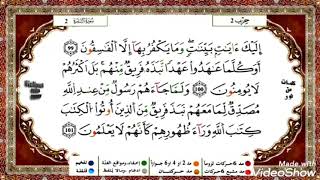 حزب 2
سورة البقرة 2
إِلَيْكَ ءَايَٰتٍۭ بَيِّنَٰتٍ وَمَا يَكْفُرُ بِهَآ إِلَّا ٱلْفَٰسِقُونَ 99
أَوَكُلَّمَا عَٰهَدُوا۟ عَهْدًا نَّبَذَهُۥ فَرِيقٌ مِّنْهُم بَلْ أَكْثَرُهُمْ
لَا يُؤْمِنُونَ 100 وَلَمَّا جَآءَهُمْ رَسُولٌ مِّنْ عِندِ ٱللَّهِ
مُصَدِّقٌ لِّمَا مَعَهُمْ نَبَذَ فَرِيقٌ مِّنَ ٱلَّذِينَ أُوتُوا۟ ٱلْكِتَٰبَ
كِتَٰبَ ٱللَّهِ وَرَآءَ ظُهُورِهِمْ كَأَنَّهُمْ لَا يَعْلَمُونَ 101
صدقات
من
نور
Made with
VideoShow